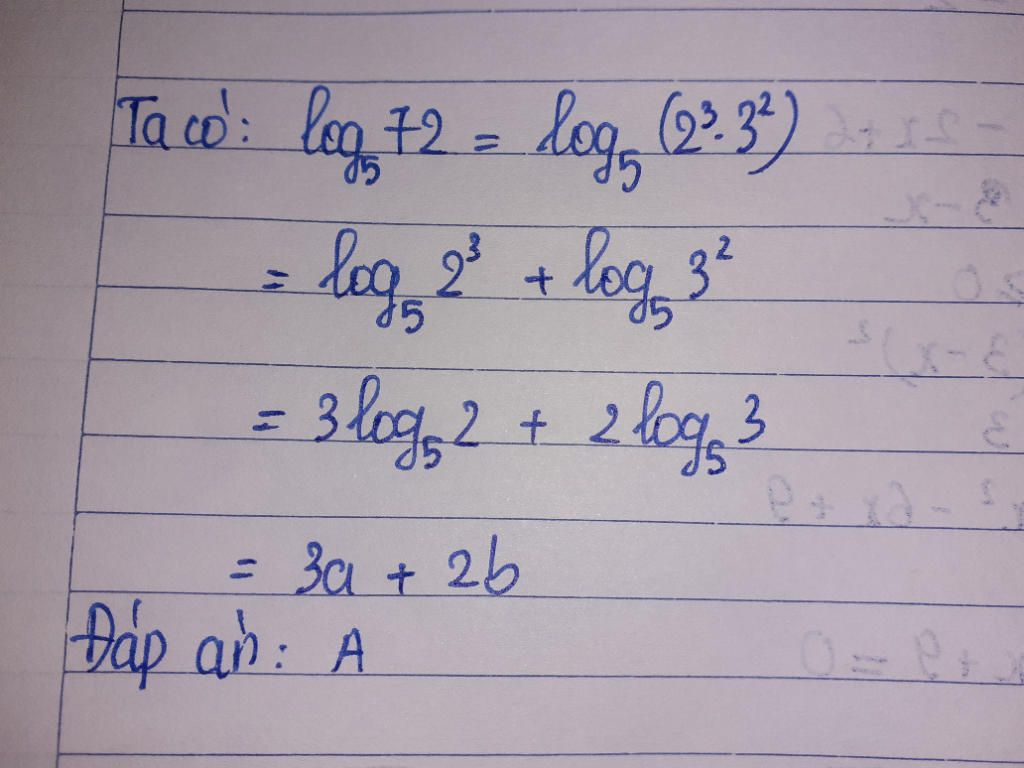 Ta có: log₅72 = log₅(2³.3²)
= log₅2³ + log₅3²
= 3log₅2 + 2log₅3
= 3a + 2b
Đáp án: A